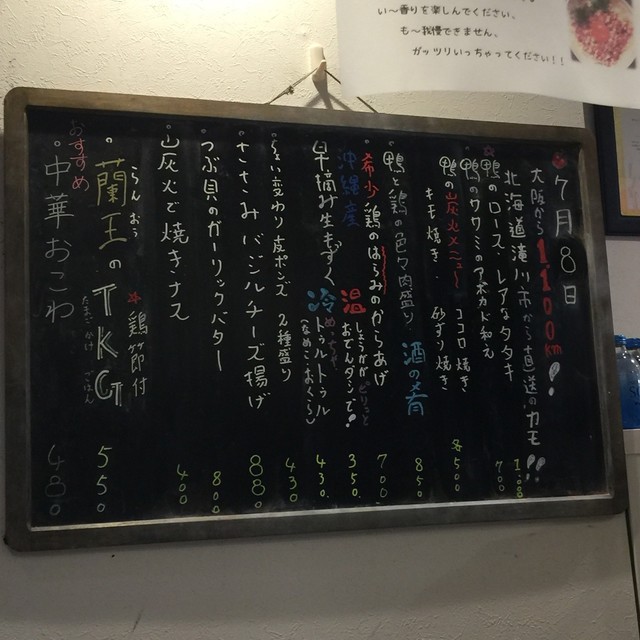 い〜香りを楽しんでください、
も〜我慢できません、
ガッツリいっちゃってください！！
7月8日
大阪から1100km!!
北海道滝川市から直送のカモ!!
鴨のロース、レアなタタキ 1000
鴨のササミのアボカド和え 700
鴨の炭火メニュー ココロ焼き 各500
キモ焼き 砂ずり焼き
鴨と鶏の色々肉盛り 850
酒の肴
希少鶏のはらみのからあげ 700
沖縄産 温 しょうがが どりっと おでんダシで! 350.
早摘み生もずく 冷 トゥルトゥル (なめこ・おくら) 430.
ちょい変わり皮ポンズ 2種盛り 430
ささみバジルチーズ揚げ 880
つぶ貝のガーリックバター 800
炭火で焼きナス 400
蘭王のTKG 鶏節付 550
らんおう
たまご かけ ごはん
おすすめ
中華おこわ 480